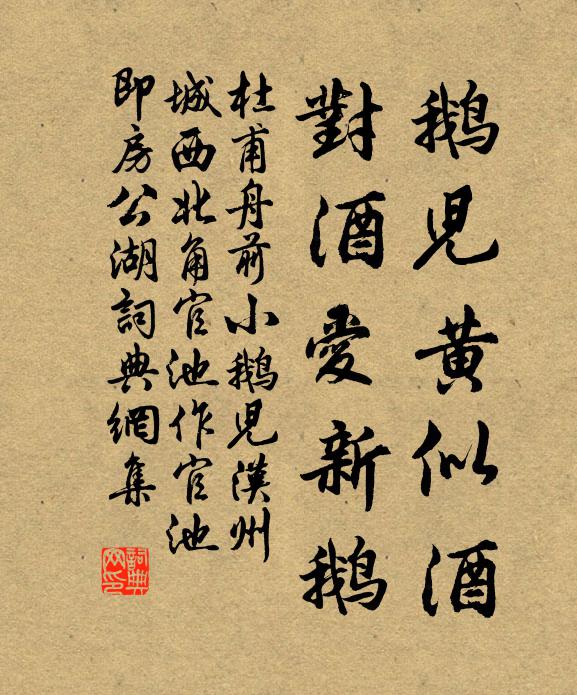 鵝兒黃似酒
對酒愛新鵝
杜甫舟前小鵝兒漢州
城西北角官池作官池
即房公湖詞典網集
詞典
网印